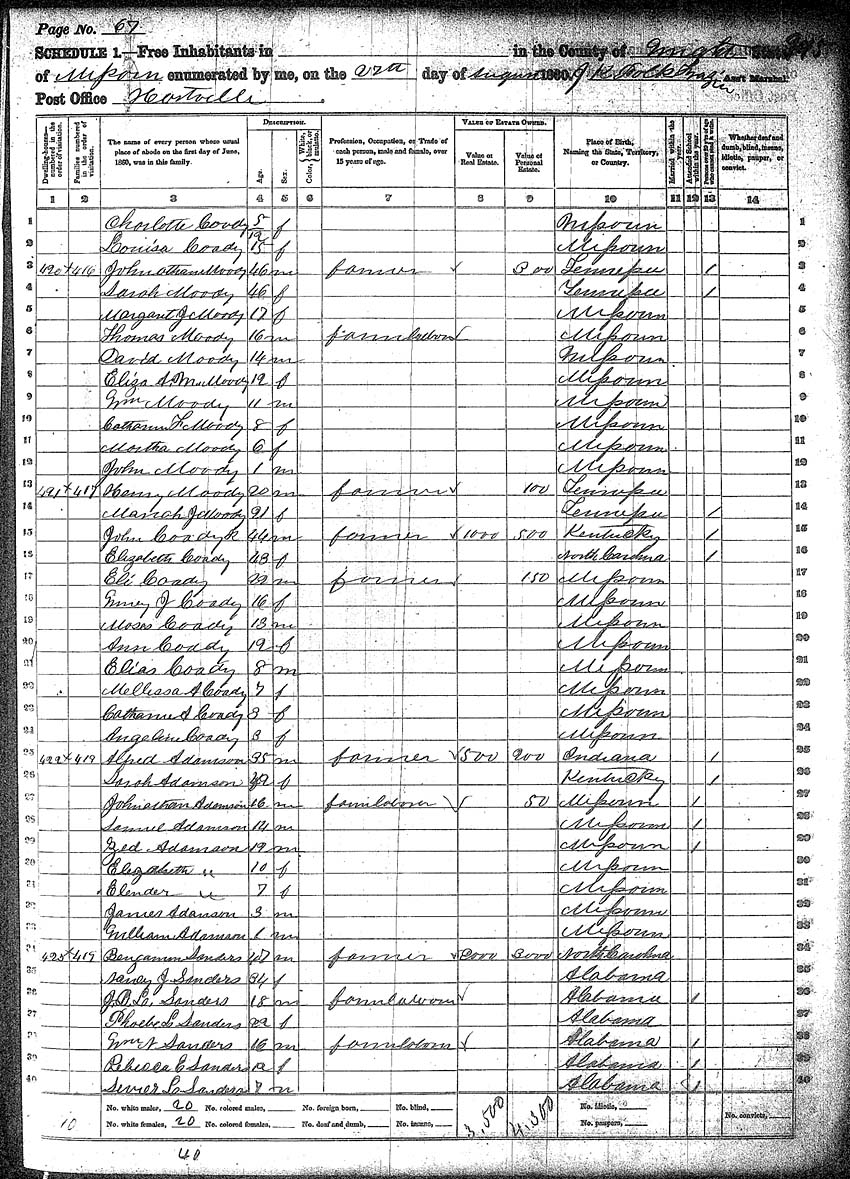 Page No. 67
SCHEDULE 1.—Free Inhabitants in in the County of Wright State
of Missouri enumerated by me, on the 27th day of August 1860. Ass't Marshal.
Post Office Hartville
DESCRIPTION. VALUE OF ESTATE OWNED.
Dwelling-houses—numbered in the order of visitation. Families numbered in the order of visitation. The name of every person whose usual place of abode on the first day of June, 1860, was in this family. Age. Sex. Color, White, black, or mulatto. Profession, Occupation, or Trade of each person, male and female, over 15 years of age. Value of Real Estate. Value of Personal Estate. Place of Birth, Naming the State, Territory, or Country. Married within the year. Attended School within the year. Persons over 20 y'rs of age who cannot read & write. Whether deaf and dumb, blind, insane, idiotic, pauper, or convict.
1 2 3 4 5 6 7 8 9 10 11 12 13 14
1 Charlotte Coody 5/12 f Missouri 1
2 Louisa Coady 15 f Missouri 2
3 420 416 Johnathan Moody 46 m farmer 300 Tennessee 1 3
4 Sarah Moody 46 f Tennessee 1 4
5 Margaret J Moody 17 f Missouri 5
6 Thomas Moody 16 m farm laborer Missouri 6
7 David Moody 14 m Missouri 7
8 Eliza A Moody 12 f Missouri 8
9 Wm Moody 11 m Missouri 9
10 Catharine F Moody 8 f Missouri 10
11 Martha Moody 6 f Missouri 11
12 John Moody 1 m Missouri 12
13 421 417 Henry Moody 20 m farmer 100 Tennessee 13
14 Mariah J Moody 21 f Tennessee 1 14
15 John Coady 44 m farmer 1000 500 Kentucky 1 15
16 Elizabeth Coady 43 f North Carolina 1 16
17 Eli Coady 22 m farmer 150 Missouri 17
18 J Coady 16 f Missouri 18
19 Moses Coady 13 m Missouri 19
20 Ann Coady 12 f Missouri 20
21 Elias Coady 8 m Missouri 21
22 Mellissa A Coady 7 f Missouri 22
23 Catharine A Coady 3 f Missouri 23
24 Angeline Coady 3 f Missouri 24
25 422 418 Alfred Adamson 35 m farmer 500 200 Indiana 1 25
26 Sarah Adamson f Kentucky 1 26
27 Johnathan Adamson 16 m farm laborer 50 Missouri 1 27
28 Samuel Adamson 14 m Missouri 1 28
29 Adamson 12 m Missouri 1 29
30 Elizabeth " 10 f Missouri 30
31 Elender " 7 f Missouri 31
32 James Adamson 3 m Missouri 32
33 William Adamson 1 m Missouri 33
34 423 419 Benjamin Sanders m farmer 2000 3000 North Carolina 34
35 Nancy J Sanders 34 f Alabama 35
36 Sanders 18 m farm laborer Alabama 1 36
37 Phoebe L Sanders 22 f Alabama 37
38 Wm N Sanders 16 m farm laborer Alabama 1 38
39 Rebecca E Sanders 12 f Alabama 1 39
40 Sevier L Sanders 7 m Alabama 1 40
No. white males, 20 No. colored males, No. foreign born, No. blind, 3,500 4,300 No. idiotic, No. convicts,
10 No. white females, 20 No. colored females, No. deaf and dumb, No. insane, No. paupers,
40